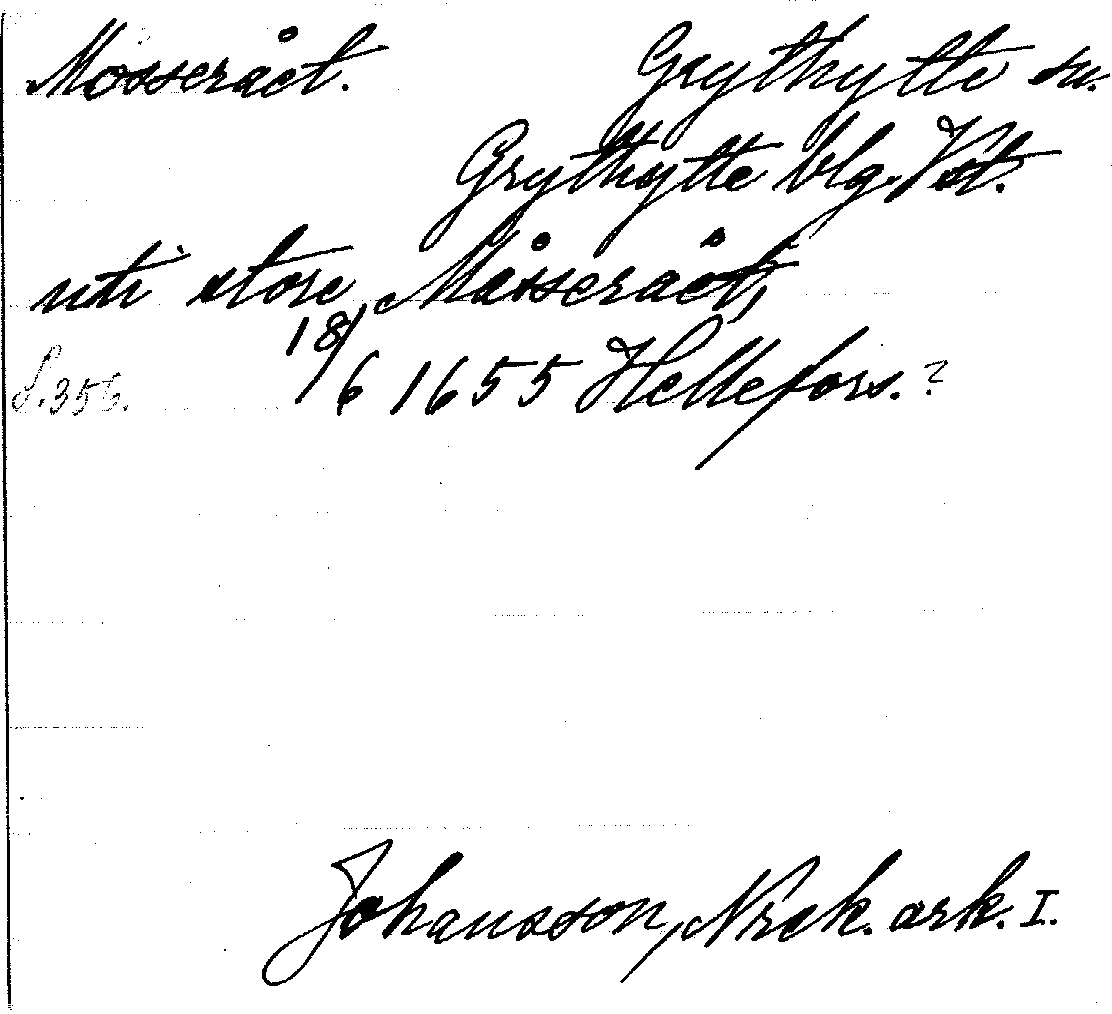 Mosseråct. Grythytte sn.
Grythytte blg. Vst.
uti store Måsseråct,
18/6 1655 Hellefors.?
S. 355.
Johansson, Nrek. ark. I.